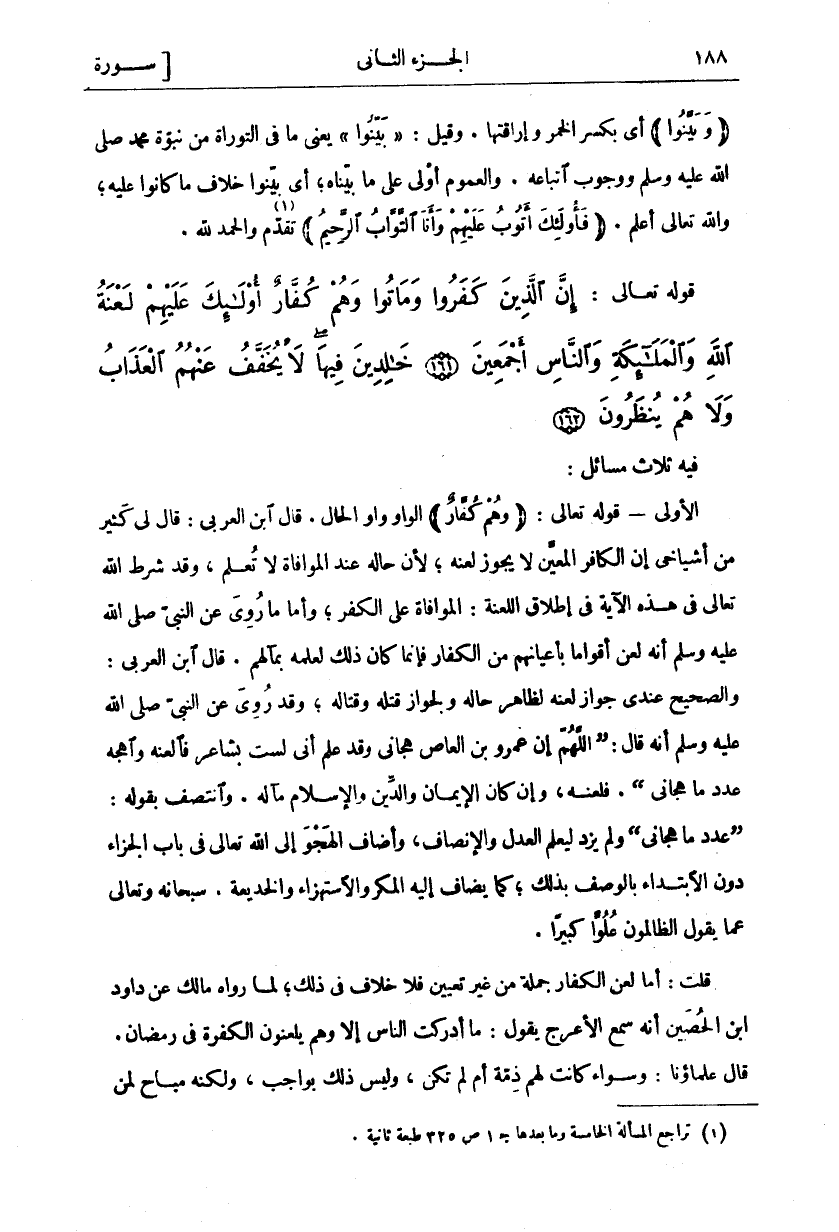 ١٨٨ الجـــزء الثـــانى [ ســـورة
﴿ وَبَيَّنُوا ﴾ أى بكسر الخمر و إراقتها . وقيل : « بَيّنُوا » يعنى ما فى التوراة من نبوّة محمد صلى
الله عليه وسلم ووجوب ٱتباعه . والعموم أوْلى على ما بيّناه؛ أى بيّنوا خلاف ما كانوا عليه؛
والله تعالى أعلم . ﴿ فَأُولَئِكَ أَتُوبُ عَلَيْهِمْ وَأَنَا ٱلتَّوَّابُ ٱلرَّحِيمُ ﴾ تقدّم (١) والحمد لله .
قوله تعـــالى : إِنَّ ٱلَّذِينَ كَفَرُوا وَمَاتُوا وَهُمْ كُفَّارٌ أُوْلَـٰٓئِكَ عَلَيْهِمْ لَعْنَةُ
ٱللَّهِ وَٱلْمَلَـٰٓئِكَةِ وَٱلنَّاسِ أَجْمَعِينَ ١٦١ خَـٰلِدِينَ فِيهَا ۖ لَا يُخَفَّفُ عَنْهُمُ ٱلْعَذَابُ
وَلَا هُمْ يُنظَرُونَ ١٦٢
فيه ثلاث مسائل :
الأولى — قوله تعالى : ﴿ وَهُمْ كُفَّارٌ ﴾ الواو واو الحال . قال ٱبن العربى : قال لى كَثير
من أشياخى إن الكافر المعيَّن لا يجوز لعنه ؛ لأن حاله عند الموافاة لا تُعـلم ، وقد شرط الله
تعالى فى هـذه الآية فى إطلاق اللعنة : الموافاة على الكفر ؛ وأما ما رُوِىَ عن النبىّ صلى الله
عليه وسلم أنه لعن أقواما بأعيانهم من الكفار فإنما كان ذلك لعلمه بمآلهم . قال ٱبن العربى :
والصحيح عندى جواز لعنه لظاهر حاله ولجواز قتله وقتاله ؛ وقد رُوِىَ عن النبىّ صلى الله
عليه وسلم أنه قال : ”اللَّهُمّ إن عمرو بن العاص هجانى وقد علم أنى لست بشاعر فٱلعنه وٱهجه
عدد ما هجانى “ . فلعنـه، وإن كان الإيمـان والدِّين والإسـلام مآله . وٱنتصف بقوله :
”عدد ما هجانى“ ولم يزد ليعلم العدل والإنصاف، وأضاف الهَجْوَ إلى الله تعالى فى باب الجزاء
دون الٱبتـداء بالوصف بذلك ؛ كما يضاف إليه المكر والٱستهزاء والخديعة . سبحانه وتعالى
عما يقول الظالمون عُلُوًّا كبيرًا .
قلت : أما لعن الكفار جملة من غير تعيين فلا خلاف فى ذلك؛ لمـا رواه مالك عن داود
ابن الحُصَين أنه سمع الأعرج يقول : ما أدركت الناس إلا وهم يلعنون الكفرة فى رمضان .
قال علماؤنا : وسـواء كانت لهم ذِمّة أم لم تكن ، وليس ذلك بواجب ، ولكنه مبـاح لمن
(١) تراجع المسألة الخامسة وما بعدها جـ ١ ص ٣٢٥ طبعة ثانية .